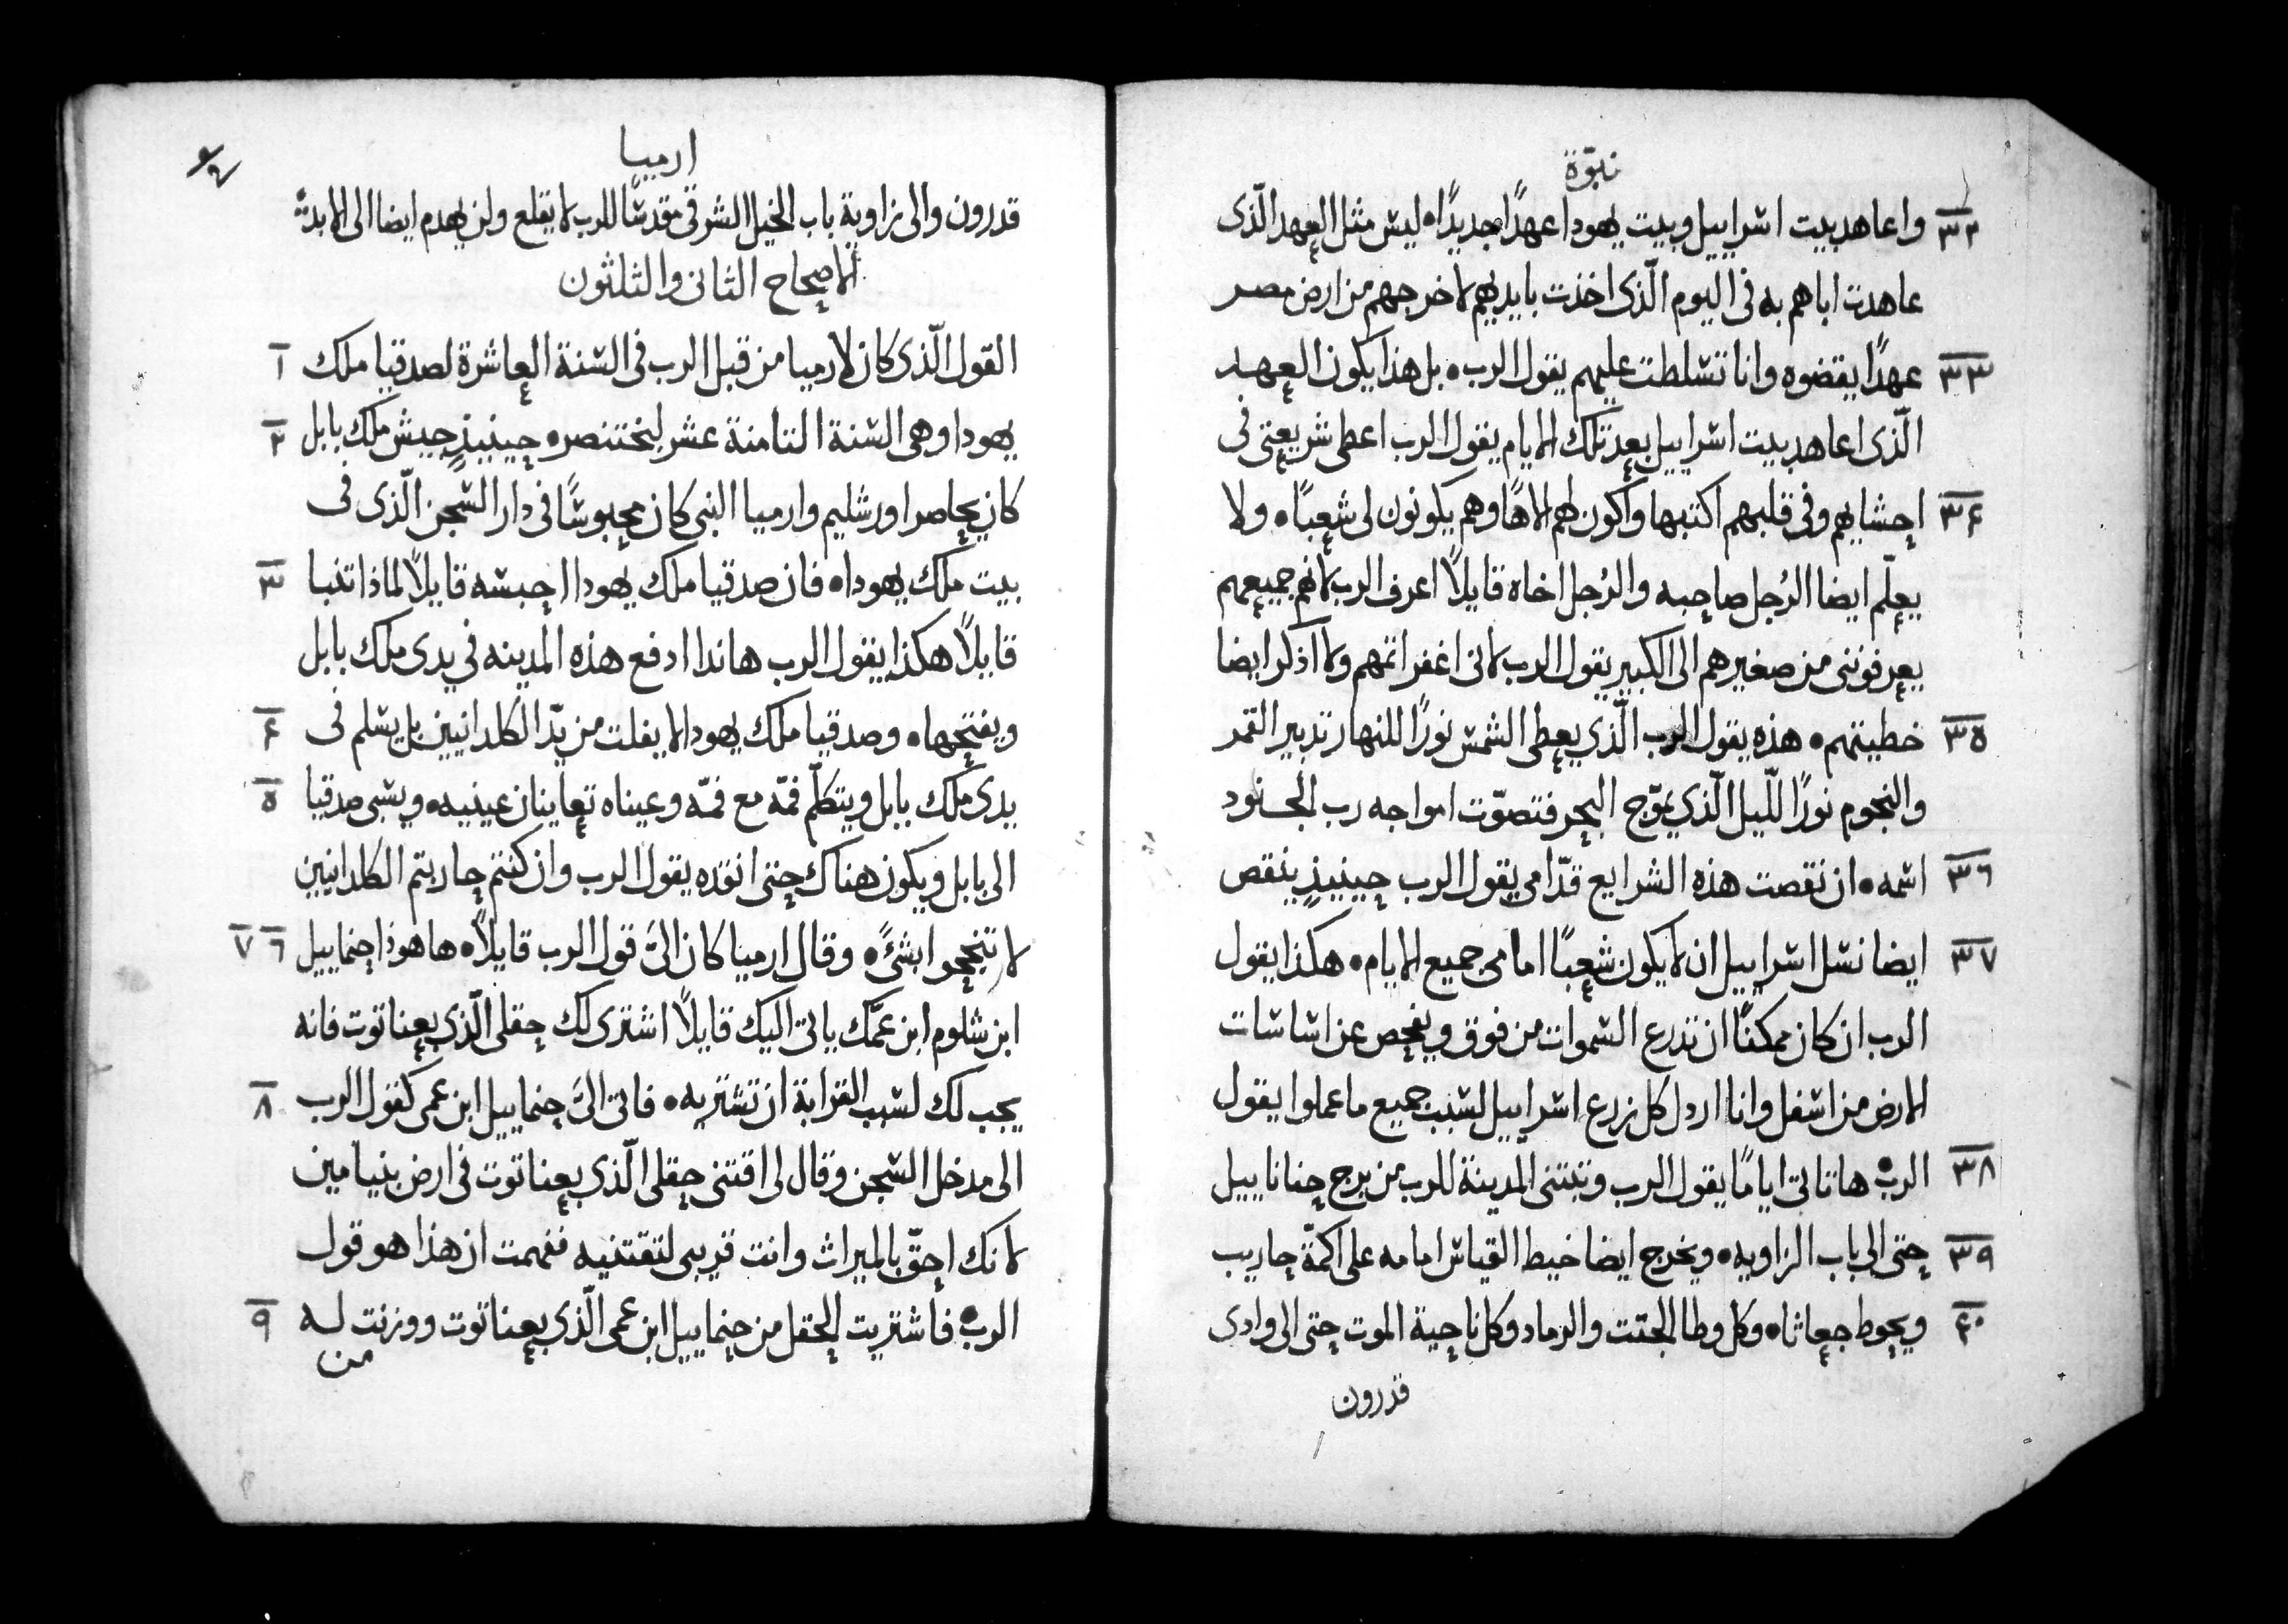 نبوّة
٣٢ واعاهد بيت اسراييل وبيت يهودا عهدًا جديدًا • ليس مثل العهد الّذى
عاهدت اباهم به فى اليوم الّذى اخذت بايديهم لاخرجهم من ارض مصر
٣٣ عهدًا يقضوه وانا تسلطت عليهم يقول الرب • بل هذا يكون العهد
الّذى اعاهد بيت اسراييل بعد تلك الايام يقول الرب اعطى شريعتى فى
٣٤ احشايهم وفى قلبهم اكتبها واكون لهم الاهًا وهم يكونون لى شعبًا • ولا
يعلّم ايضا الرُجل صاحبه والرُجل اخاه قايلاً اعرف الرب لانهم جميعهم
يعرفوننى من صغيرهم الى الكبير يقول الرب لانى اغفر اثمهم ولا اذكر ايضا
٣٥ خطيتهم • هذه يقول الرب الّذي يعطى الشمس نورًا للنهار تدبير القمر
والنجوم نورًا اللّيل الّذي يموّج البحر فتصوّت امواجه رب الجنود
٣٦ اسمه • ان نقصت هذه الشرايع قدّامى يقول الرب حينيذٍ ينقص
٣٧ ايضا نسل اسراييل ان لا يكون شعبًا امامى جميع الايام • هكذا يقول
الرب ان كان ممكنًا ان تذرع السموات من فوق ويفحص عن اساسات
الارض من اسفل وانا اردل كل زرع اسراييل لسبب جميع ما عملوا يقول
٣٨ الرب • ها تاتى ايامًا يقول الرب وتبتنى المدينة للرب من برج حناناييل
٣٩ حتى الى باب الزاويه • ويخرج ايضا خيط القياس امامه على اكمّة جاريب
٤٠ ويحوط جعاثا • وكل وطا الجثت والرماد وكل ناحية الموت حتى الى وادى
قدرون
ارميا
قدرون والى زاوية باب الخيل الشرقى مقدسًا للرب لا يقلع ولن يهدم ايضا الى الابد
الاصحاح الثانى والثلثون
١ القول الّذى كان لارميا من قبل الرب فى السنة العاشرة لصدقيا ملك
٢ يهودا وهى السنة الثامنة عشر لبختنصر • حينيذٍ جيش ملك بابل
كان يحاصر اورشليم وارميا النبى كان محبوسًا فى دار السجن الّذى فى
٣ بيت ملك يهودا • فان صدقيا ملك يهودا احبسه قايلاً لماذا تنبا
قايلاً هكذا يقول الرب هاندا ادفع هذه المدينه في يدى ملك بابل
٤ ويفتحها • وصدقيا ملك يهودا لا يفلت من يدّ الكلدانيين بل يسلم فى
٥ يدى ملك بابل ويتكلّم فمّه مع فمّه وعيناه تعاينان عينيه • ويسبى صدقيا
الى بابل ويكون هناك حتى انقده يقول الرب وان كنتم حاربتم الكلدانيين
٦ ٧ لا تنجحوا بشئً • وقال ارميا كان الىَّ قول الرب قايلاً • ها هوذا حنماييل
ابن شلوم ابن عمّك ياتى اليك قايلاً اشترى لك حقلى الّذى بعناتوت فانه
٨ يجب لك لسبب القرابة ان تشتريه • فاتى الىَّ حنماييل ابن عمى كقول الرب
الى مدخل السجن وقال لى اقتنى حقلى الّذي بعناتوت فى ارض بنيامين
لانك احقّ بالميراث وانت قريبى لتقتنيه ففهمت ان هذا هو قول
٩ الرب • فاشتريت الحقل من حنماييل ابن عمى الّذي بعناتوت ووزنت له
من